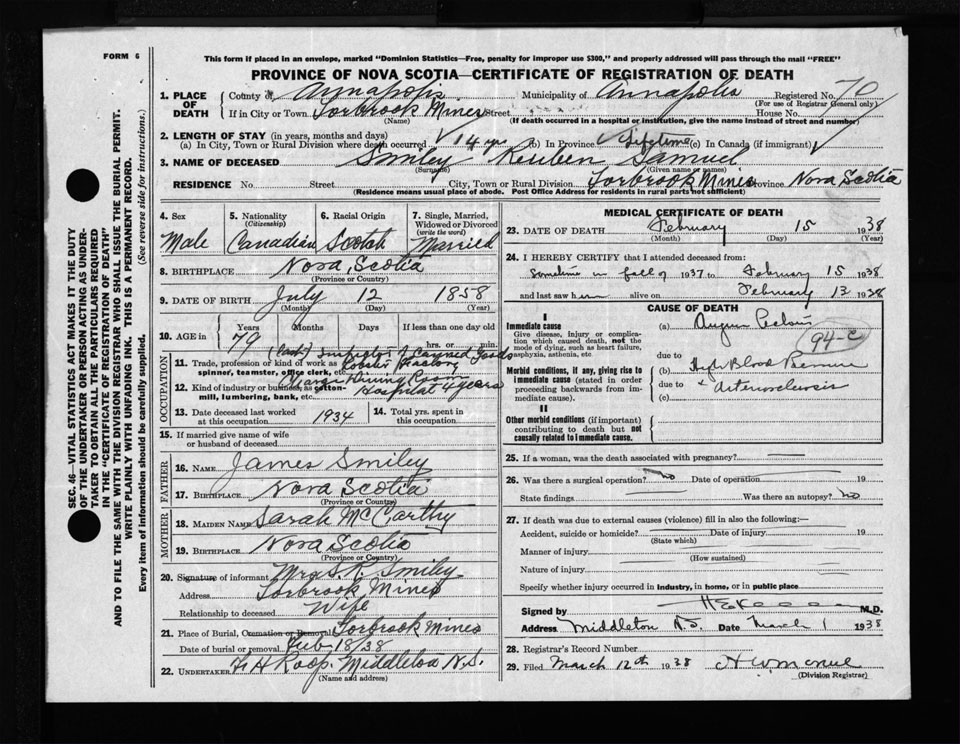 FORM 6
This form if placed in an envelope, marked "Dominion Statistics—Free, penalty for improper use $300," and properly addressed will pass through the mail "FREE"
PROVINCE OF NOVA SCOTIA—CERTIFICATE OF REGISTRATION OF DEATH
1. PLACE OF DEATH
County of Annapolis Municipality of Annapolis Registered No. 70
(For use of Registrar General only)
If in City or Town Torbrook Mines Street House No.
(Name) (If death occurred in a hospital or institution, give the name instead of street and number)
2. LENGTH OF STAY (in years, months and days)
(a) In City, Town or Rural Division where death occurred 14 yrs (b) In Province Lifetime (c) In Canada (if immigrant)
3. NAME OF DECEASED Smiley Reuben Samuel
(Surname) (Given name or names)
RESIDENCE No. Street City, Town or Rural Division Torbrook Mines Province Nova Scotia
(Residence means usual place of abode. Post Office Address for residents in rural parts not sufficient)
4. Sex Male
5. Nationality (Citizenship) Canadian
6. Racial Origin Scotch
7. Single, Married, Widowed or Divorced (write the word) Married
8. BIRTHPLACE Nova Scotia
(Province or Country)
9. DATE OF BIRTH July 12 1858
(Month) (Day) (Year)
10. AGE in Years Months Days If less than one day
79 hrs. or min.
OCCUPATION
11. Trade, profession or kind of work as spinner, teamster, office clerk, etc. Inspector of Canned Goods Lobster Factory
12. Kind of industry or business, as cotton-mill, lumbering, bank, etc. Charge Dining Room Hospital 4 years
13. Date deceased last worked at this occupation 1934
14. Total yrs. spent in this occupation
15. If married give name of wife or husband of deceased
FATHER
16. NAME James Smiley
17. BIRTHPLACE Nova Scotia
(Province or Country)
MOTHER
18. MAIDEN NAME Sarah McCarthy
19. BIRTHPLACE Nova Scotia
(Province or Country)
20. Signature of informant Mrs. S. R. Smiley
Address Torbrook Mines
Relationship to deceased Wife
21. Place of Burial, Cremation or Removal Torbrook Mines
Date of burial or removal Feb 18/38
22. UNDERTAKER F H Roop. Middleton N.S.
(Name and address)
MEDICAL CERTIFICATE OF DEATH
23. DATE OF DEATH February 15 1938
(Month) (Day) (Year)
24. I HEREBY CERTIFY that I attended deceased from:
Sometime in fall of 1937 to February 15 1938
and last saw him alive on February 13 1938
CAUSE OF DEATH
I
Immediate cause
Give disease, injury or complication which caused death, not the mode of dying, such as heart failure, asphyxia, asthenia, etc.
(a) Angina Pectoris 94-c
due to
Morbid conditions, if any, giving rise to immediate cause (stated in order proceeding backwards from immediate cause).
(b) High Blood Pressure
due to + Arteriosclerosis
(c)
II
Other morbid conditions (if important) contributing to death but not causally related to immediate cause.
25. If a woman, was the death associated with pregnancy?
26. Was there a surgical operation? no Date of operation 19
State findings Was there an autopsy? no
27. If death was due to external causes (violence) fill in also the following:—
Accident, suicide or homicide? Date of injury 19
(State which)
Manner of injury
(How sustained)
Nature of injury
Specify whether injury occurred in industry, in home, or in public place
Signed by M.D.
Address Middleton N.S. Date March 1 1938
28. Registrar's Record Number
29. Filed March 12th 1938
(Division Registrar)
SEC. 46—VITAL STATISTICS ACT MAKES IT THE DUTY OF THE UNDERTAKER OR PERSON ACTING AS UNDERTAKER TO OBTAIN ALL THE PARTICULARS REQUIRED IN THE "CERTIFICATE OF REGISTRATION OF DEATH" AND TO FILE THE SAME WITH THE DIVISION REGISTRAR WHO SHALL ISSUE THE BURIAL PERMIT.
WRITE PLAINLY WITH UNFADING INK. THIS IS A PERMANENT RECORD.
Every item of Information should be carefully supplied. (See reverse side for instructions.)